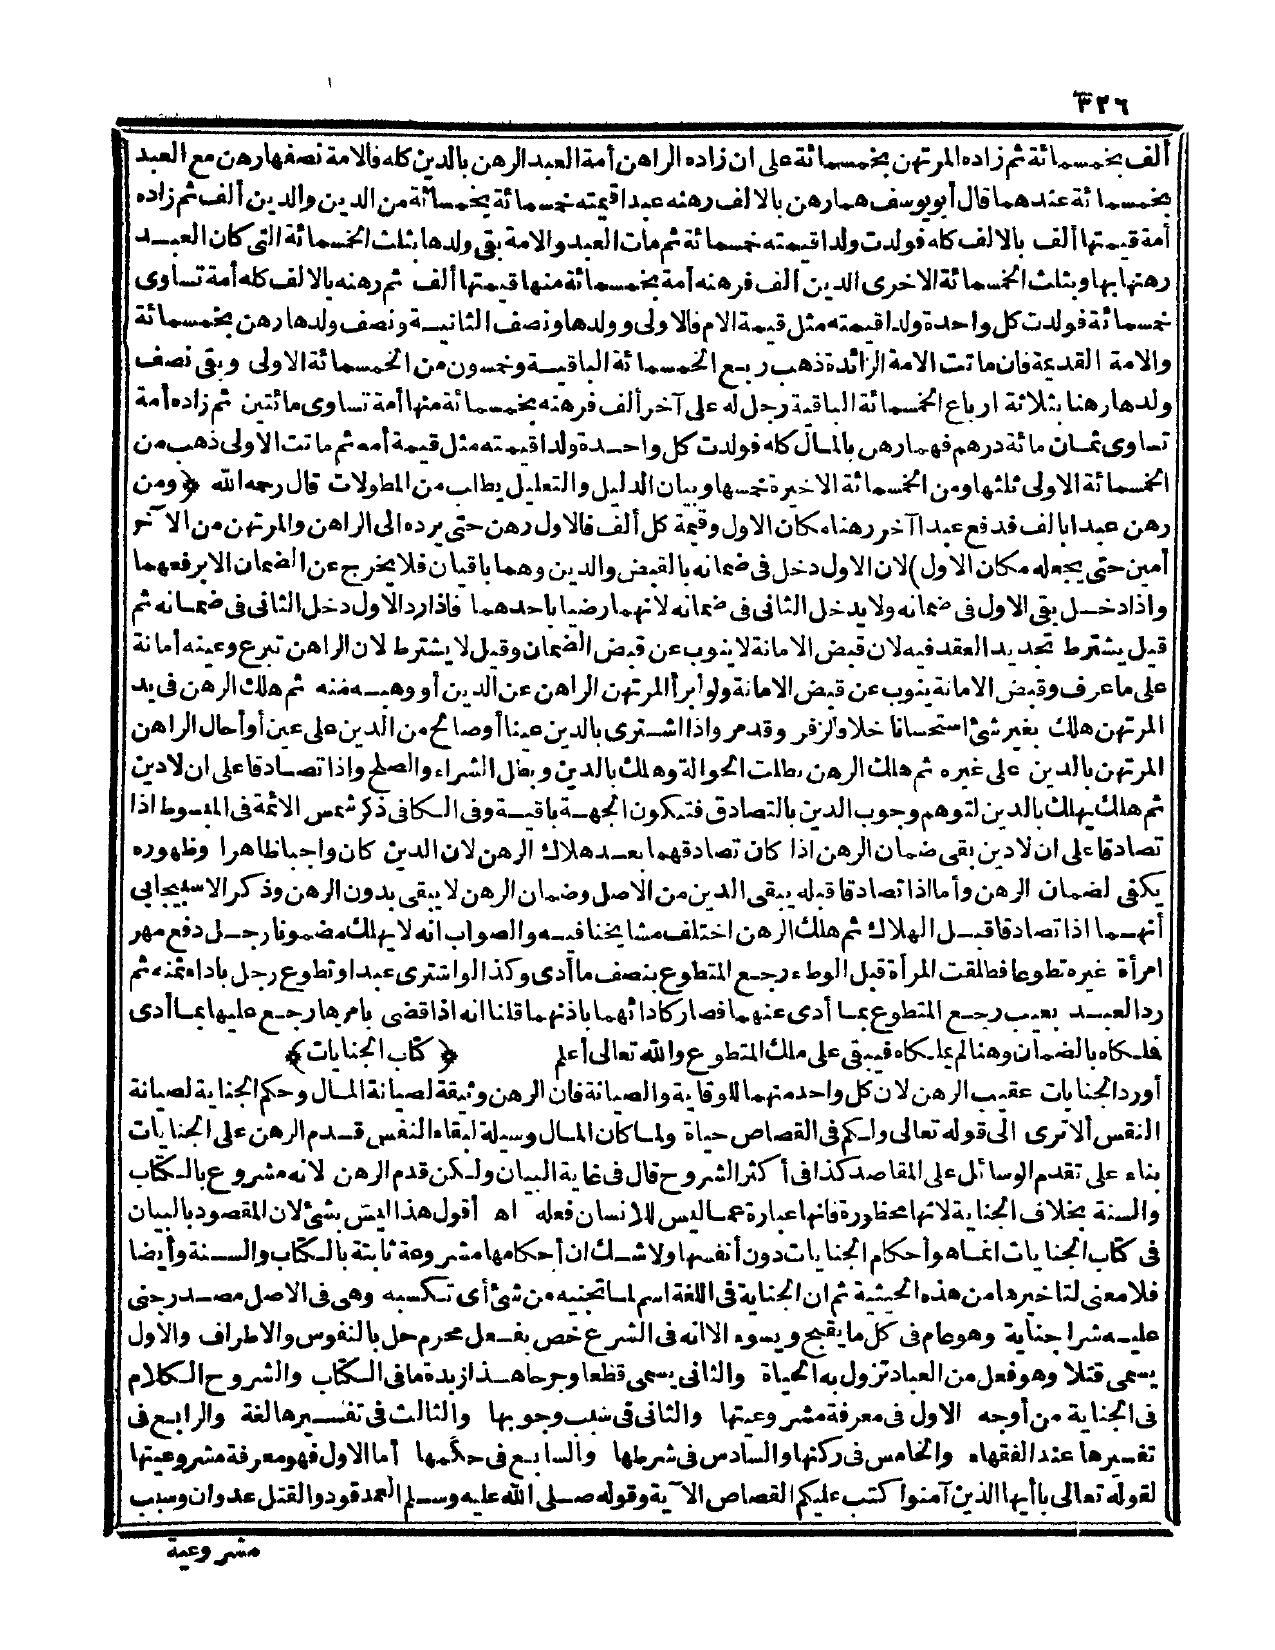 ٣٢٦
ألف بخمسمائة ثم زاده المرتهن بخمسمائة على ان زاده الراهن أمة العبد الرهن بالدين كله فالامة نصفها رهن مع العبد
بخمسمائة عندهما قال أبو يوسف هما رهن بالالف رهنه عبدا قيمته خمسمائة بخمسمائة من الدين والدين ألف ثم زاده
أمة قيمتها ألف بالالف كله فولدت ولدا قيمته خمسمائة ثم مات العبد والامة بقى ولدها بثلث الخمسمائة التى كان العبد
رهنا بها وبثلث الخمسمائة الاخرى الدين ألف فرهنه أمة بخمسمائة منها قيمتها ألف ثم رهنه بالالف كله أمة تساوى
خمسمائة فولدت كل واحدة ولدا قيمته مثل قيمة الام فالاولى وولدها ونصف الثانية ونصف ولدها رهن بخمسمائة
والامة القديمة فان ماتت الامة الزائدة ذهب ربع الخمسمائة الباقية وخمسون من الخمسمائة الاولى وبقى نصف
ولدها رهنا بثلاثة ارباع الخمسمائة الباقية رجل له على آخر ألف فرهنه بخمسمائة منها أمة تساوى مائتين ثم زاده أمة
تساوى ثمان مائة درهم فهما رهن بالمال كله فولدت كل واحدة ولدا قيمته مثل قيمة أمه ثم ماتت الاولى ذهب من
الخمسمائة الاولى ثلثها ومن الخمسمائة الاخيرة خمسها وبيان الدليل والتعليل يطلب من المطولات قال رحمه الله ﴿ومن
رهن عبدا بالف فدفع عبدا آخر رهنا مكان الاول وقيمة كل ألف فالاول رهن حتى يرده الى الراهن والمرتهن من الآخر
أمين حتى يجعله مكان الاول) لان الاول دخل فى ضمانه بالقبض والدين وهما باقيان فلا يخرج عن الضمان الا برفعهما
واذا دخل بقى الاول فى ضمانه ولا يدخل الثانى فى ضمانه لانهما رضيا باحدهما فاذا رد الاول دخل الثانى فى ضمانه ثم
قيل يشترط تجديد العقد فيه لان قبض الامانة لا ينوب عن قبض الضمان وقيل لا يشترط لان الراهن تبرع وعينه أمانة
على ما عرف وقبض الامانة ينوب عن قبض الامانة ولو أبرأ المرتهن الراهن عن الدين أو وهبه منه ثم هلك الرهن فى يد
المرتهن هلك بغير شئ استحسانا خلاف لزفر وقد مر واذا اشترى بالدين عينا أو صالح من الدين على عين أو أحال الراهن
المرتهن بالدين على غيره ثم هلك الرهن بطلت الحوالة وهلك بالدين وبطل الشراء والصلح واذا تصادقا على ان لا دين
ثم هلك يهلك بالدين لتوهم وجوب الدين بالتصادق فتكون الجهة باقية وفى الكافى ذكر شمس الائمة فى المبسوط اذا
تصادقا على ان لا دين بقى ضمان الرهن اذا كان تصادقهما بعد هلاك الرهن لان الدين كان واجبا ظاهرا وظهوره
يكفى لضمان الرهن وأما اذا تصادقا قبله يبقى الدين من الاصل وضمان الرهن لا يبقى بدون الرهن وذكر الاسبيجابى
أنهما اذا تصادقا قبل الهلاك ثم هلك الرهن اختلف مشايخنا فيه والصواب انه لا يهلك مضمونا رجل دفع مهر
امرأة غيره تطوعا فطلقت المرأة قبل الوطء رجع المتطوع بنصف ما أدى وكذا لو اشترى عبدا وتطوع رجل باداء ثمنه ثم
رد العبد بعيب رجع المتطوع بما أدى عنهما فصار كادائهما باذنهما قلنا انه اذا قضى بامرها رجع عليها بما أدى
فلكاه بالضمان وهنا لم يملكاه فيبقى على ملك المتطوع والله تعالى أعلم ﴿كتاب الجنايات﴾
أورد الجنايات عقيب الرهن لان كل واحد منهما للوقاية والصيانة فان الرهن وثيقة لصيانة المال وحكم الجناية لصيانة
النفس ألا ترى الى قوله تعالى ولكم فى القصاص حياة ولما كان المال وسيلة لبقاء النفس قدم الرهن على الجنايات
بناء على تقدم الوسائل على المقاصد كذا فى أكثر الشروح قال فى غاية البيان ولكن قدم الرهن لانه مشروع بالكتاب
والسنة بخلاف الجناية لانها محظورة فانها عبارة عما ليس للانسان فعله اه أقول هذا ليس بشئ لان المقصود بالبيان
فى كتاب الجنايات انما هو أحكام الجنايات دون أنفسها ولا شك ان أحكامها مشروعة ثابتة بالكتاب والسنة وأيضا
فلا معنى لتاخيرها من هذه الحيثية ثم ان الجناية فى اللغة اسم لما تجنيه من شئ أى تكسبه وهى فى الاصل مصدر جنى
عليه شرا جناية وهو عام فى كل ما يقبح ويسوء الا انه فى الشرع خص بفعل محرم حل بالنفوس والاطراف والاول
يسمى قتلا وهو فعل من العباد تزول به الحياة والثانى يسمى قطعا وجرحا هذا زبدة ما فى الكتاب والشروح الكلام
فى الجناية من أوجه الاول فى معرفة مشروعيتها والثانى فى سبب وجوبها والثالث فى تفسيرها لغة والرابع فى
تفسيرها عند الفقهاء والخامس فى ركنها والسادس فى شرطها والسابع فى حكمها أما الاول فهو معرفة مشروعيتها
لقوله تعالى يا أيها الذين آمنوا كتب عليكم القصاص الآية وقوله صلى الله عليه وسلم العمد قود والقتل عدوان وسبب
مشروعية